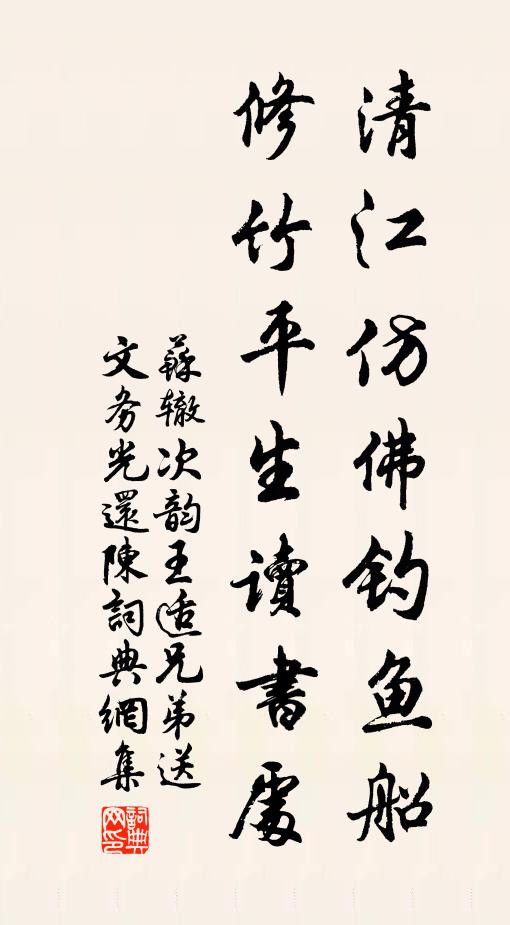 清江仿佛钓鱼船
修竹平生读書處
蘇辙次韵王适兄弟送
文务光還陳詞典網集
詞典網印